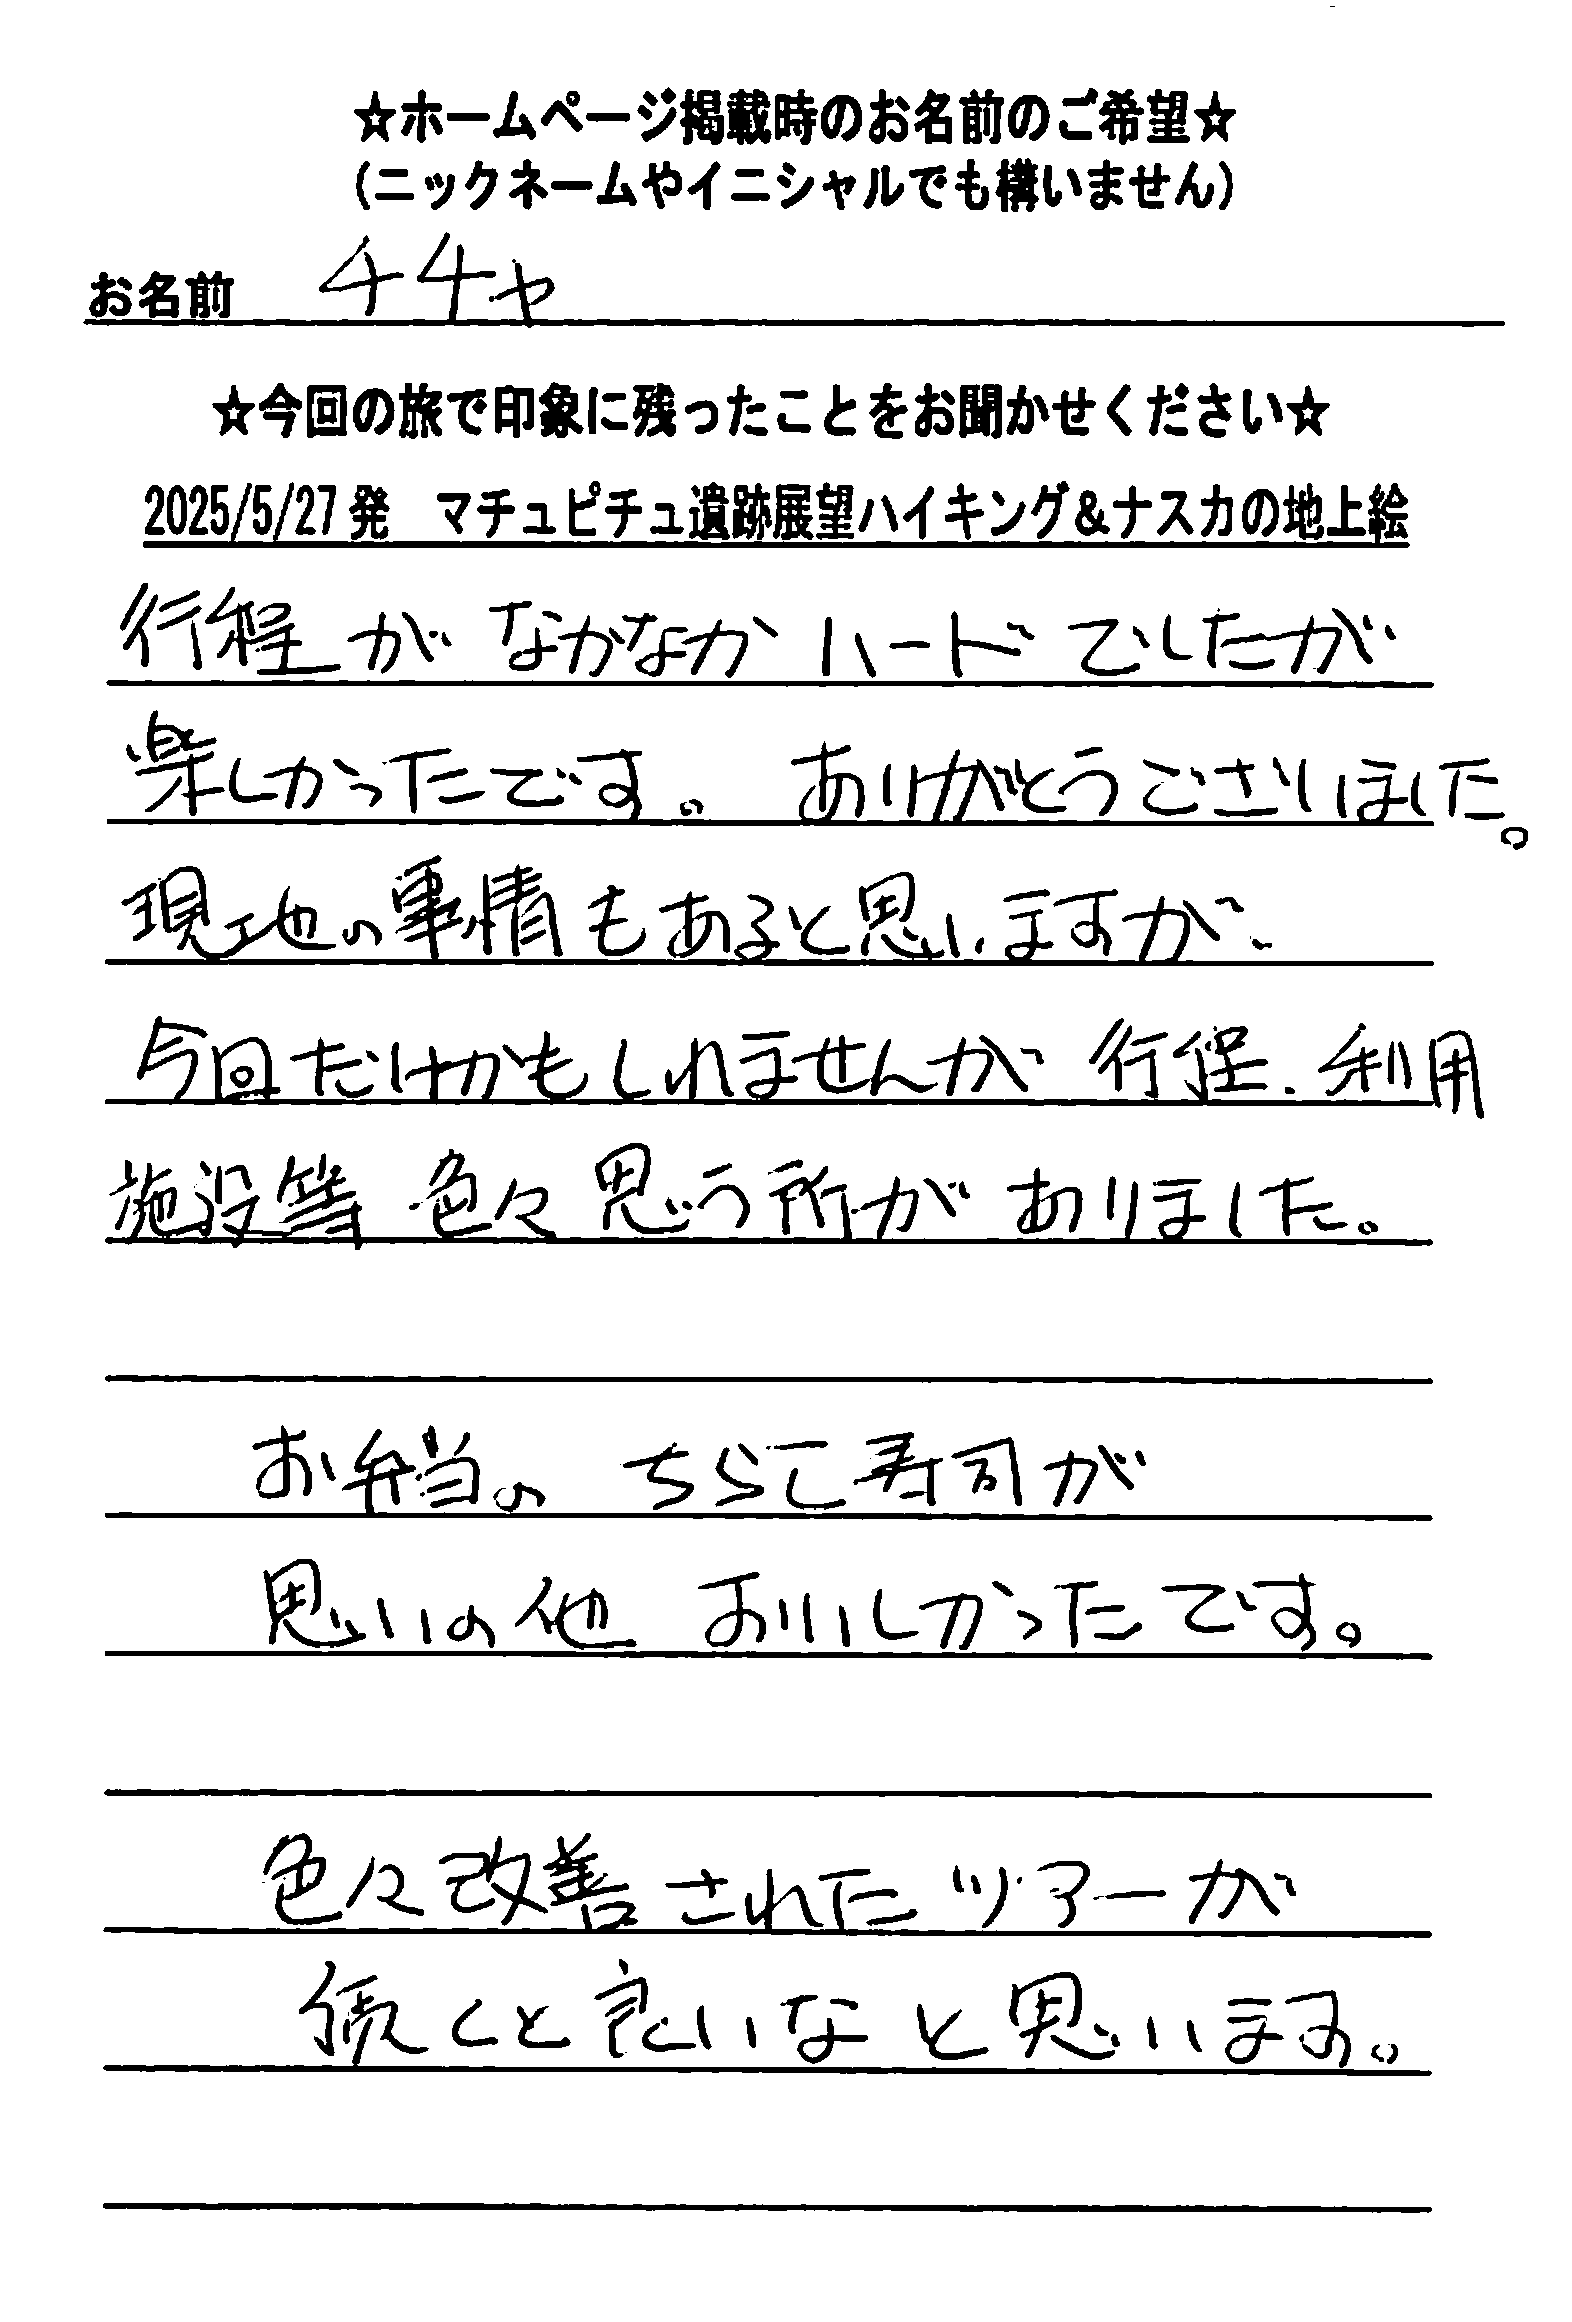 ☆ホームページ掲載時のお名前のご希望☆
(ニックネームやイニシャルでも構いません)
お名前 チチャ
☆今回の旅で印象に残ったことをお聞かせください☆
2025/5/27発 マチュピチュ遺跡展望ハイキング&ナスカの地上絵
行程が なかなか ハードでしたが
楽しかったです。 ありがとうございました。
現地の事情もあると思いますが、
今回だけかもしれませんが 行程、利用
施設等 色々 思う所が ありました。
お弁当の ちらし寿司が
思いの他 おいしかったです。
色々改善されたツアーが
続くと良いな と思います。